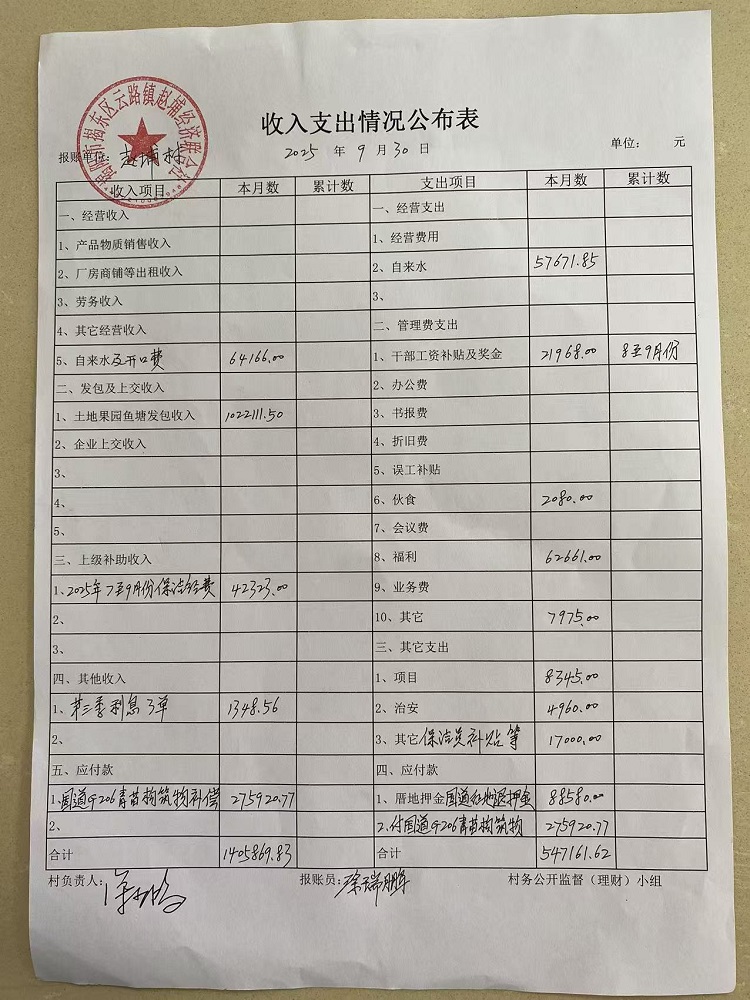 收入支出情况公布表
揭阳市揭东区云路镇赵埔经济联合社
报账单位: 赵埔村 2025 年 9 月 30 日 单位: 元
收入项目 本月数 累计数 支出项目 本月数 累计数
一、经营收入 一、经营支出
1、产品物质销售收入 1、经营费用
2、厂房商铺等出租收入 2、自来水 57671.85
3、劳务收入 3、
4、其它经营收入 二、管理费支出
5、自来水及开口费 64166.00 1、干部工资补贴及奖金 21968.00 8至9月份
二、发包及上交收入 2、办公费
1、土地果园鱼塘发包收入 1022111.50 3、书报费
2、企业上交收入 4、折旧费
3、 5、误工补贴
4、 6、伙食 2080.00
5、 7、会议费
三、上级补助收入 8、福利 62661.00
1、2025年7至9月份保洁经费 42323.00 9、业务费
2、 10、其它 7975.00
3、 三、其它支出
四、其他收入 1、项目 8345.00
1、第三季利息3单 1348.56 2、治安 4960.00
2、 3、其它保洁员补贴等 17000.00
五、应付款 四、应付款
1、国道G206青苗构筑物补偿 275920.77 1、厝地押金国道征地退押金 88580.00
2、 2、付国道G206青苗构筑物 275920.77
合计 1405869.83 合计 547161.62
村负责人: 报账员: 徐瑞鹏 村务公开监督（理财）小组